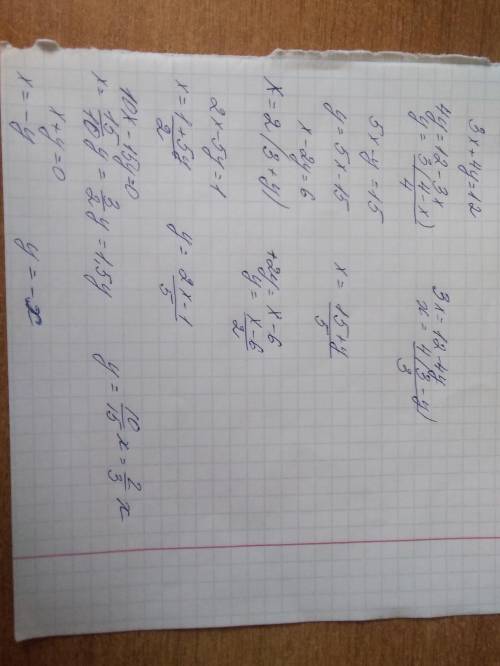 3x+4y=12
4y=12-3x    3x=12-4y
y=3(4-x)/4    x=4(3-y)/3
5x y=15
y=5x-15    x=15+y/5
x-2y=6
x=2(3+y)    +2y=x-6
y=x-6/2
2x-5y=1
x=1+5y/2    y=2x-1/5
10x-15y=0
x=15/10y=3/2y=1,5y    y=10/15x=2/3x
x+y=0
x=-y    y=-x